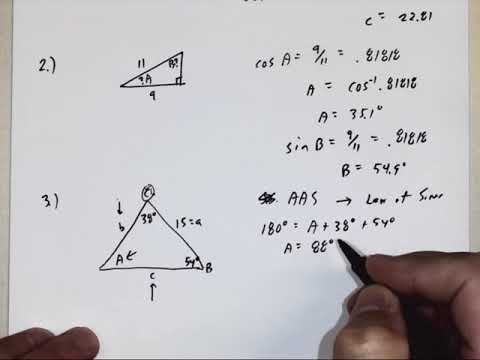 c = 22.81
2.)
11
B?
?A
9
cos A = 9/11 = .8181818
A = cos⁻¹ .81818
A = 35.1°
sin B = 9/11 = .81818
B = 54.9°
3.)
C
AAS → Law of Sines
b
38°
15=a
180° = A + 38° + 54°
A = 88°
A
54°
B
c